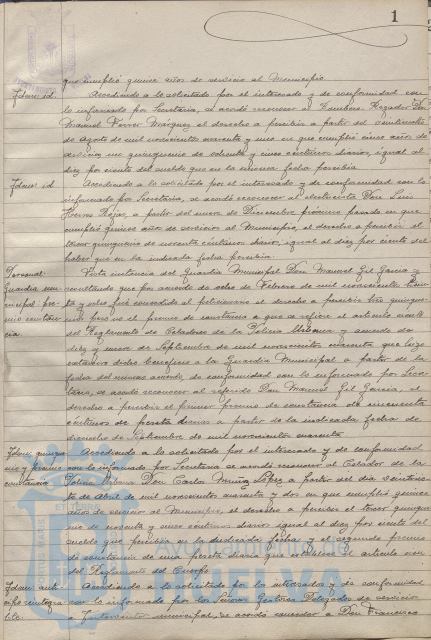 1
que cumplió quince años de servicio al Municipio.
Idem id. Accediendo a lo solicitado por el interesado y de conformidad con
lo informado por Secretaría, se acordó reconocer al Don
Manuel Ferrer Márquez el derecho a percibir a partir del
de Agosto de mil novecientos cuarenta y uno en que cumplió cinco años de
servicio un quinquenio de ochenta y cinco céntimos diarios, igual al
diez por ciento del sueldo que en la misma fecha percibía.
Idem id. Accediendo a lo solicitado por el interesado y de conformidad con lo
informado por Secretaría, se acordó reconocer al electricista Don Luis
Rojas, a partir del de Diciembre próximo pasado en que
cumplió quince años de servicio al Municipio, el derecho a percibir el
tercer quinquenio de noventa céntimos diarios, igual al diez por ciento del
haber que en la indicada fecha percibía.
Personal: Vista instancia del Guardia Municipal Don Manuel Gil García y
Guardia mu- resultando que por acuerdo de de Febrero de mil novecientos
nicipal pre- ta y le fué concedido al peticionario el derecho a percibir
mio constan- pero no el premio de constancia a que se refiere el artículo
cia del Reglamento de Celadores de la Policía Urbana y acuerdo de
diez y nueve de Septiembre de mil novecientos cuarenta que hizo
extensivo dicho beneficio a la Guardia Municipal a partir de la
fecha del mismo acuerdo, de conformidad con lo informado por Secre-
taría, se acordó reconocer al referido Don Manuel Gil García, el
derecho a percibir el primer premio de constancia de cincuenta
céntimos de peseta diarios a partir de la indicada fecha de
de Septiembre de mil novecientos cuarenta.
Idem quinque- Accediendo a lo solicitado por el interesado y de conformidad
nio y premio con lo informado por Secretaría se acordó reconocer al Celador de la
constancia Policía Urbana Don Carlos Muñiz López a partir del día
de Abril de mil novecientos cuarenta y dos en que cumplió quince
años de servicio al Municipio, el derecho a percibir el tercer quinque-
nio de noventa y cinco céntimos diarios igual al diez por ciento del
sueldo que percibía en la dedicada fecha y el segundo premio
de constancia de una peseta diaria que establece el artículo
del Reglamento del Cuerpo.
Idem Accediendo a lo solicitado por los interesados y de conformidad
con lo informado por los Señores Gestores Delegados de servicio
municipal, se acordó conceder a Don Francisco